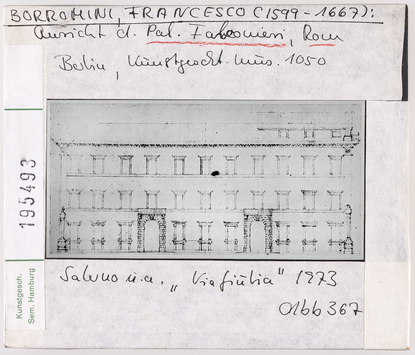 BORROMINI, FRANCESCO (1599-1667):
Ansicht d. Pal. Falconieri, Rom
Berlin, Kunstgesch. Mus. 1050
195493
Kunstgesch.
Sem. Hamburg
Salerno u.a. „Via Giulia" 1973
0166367